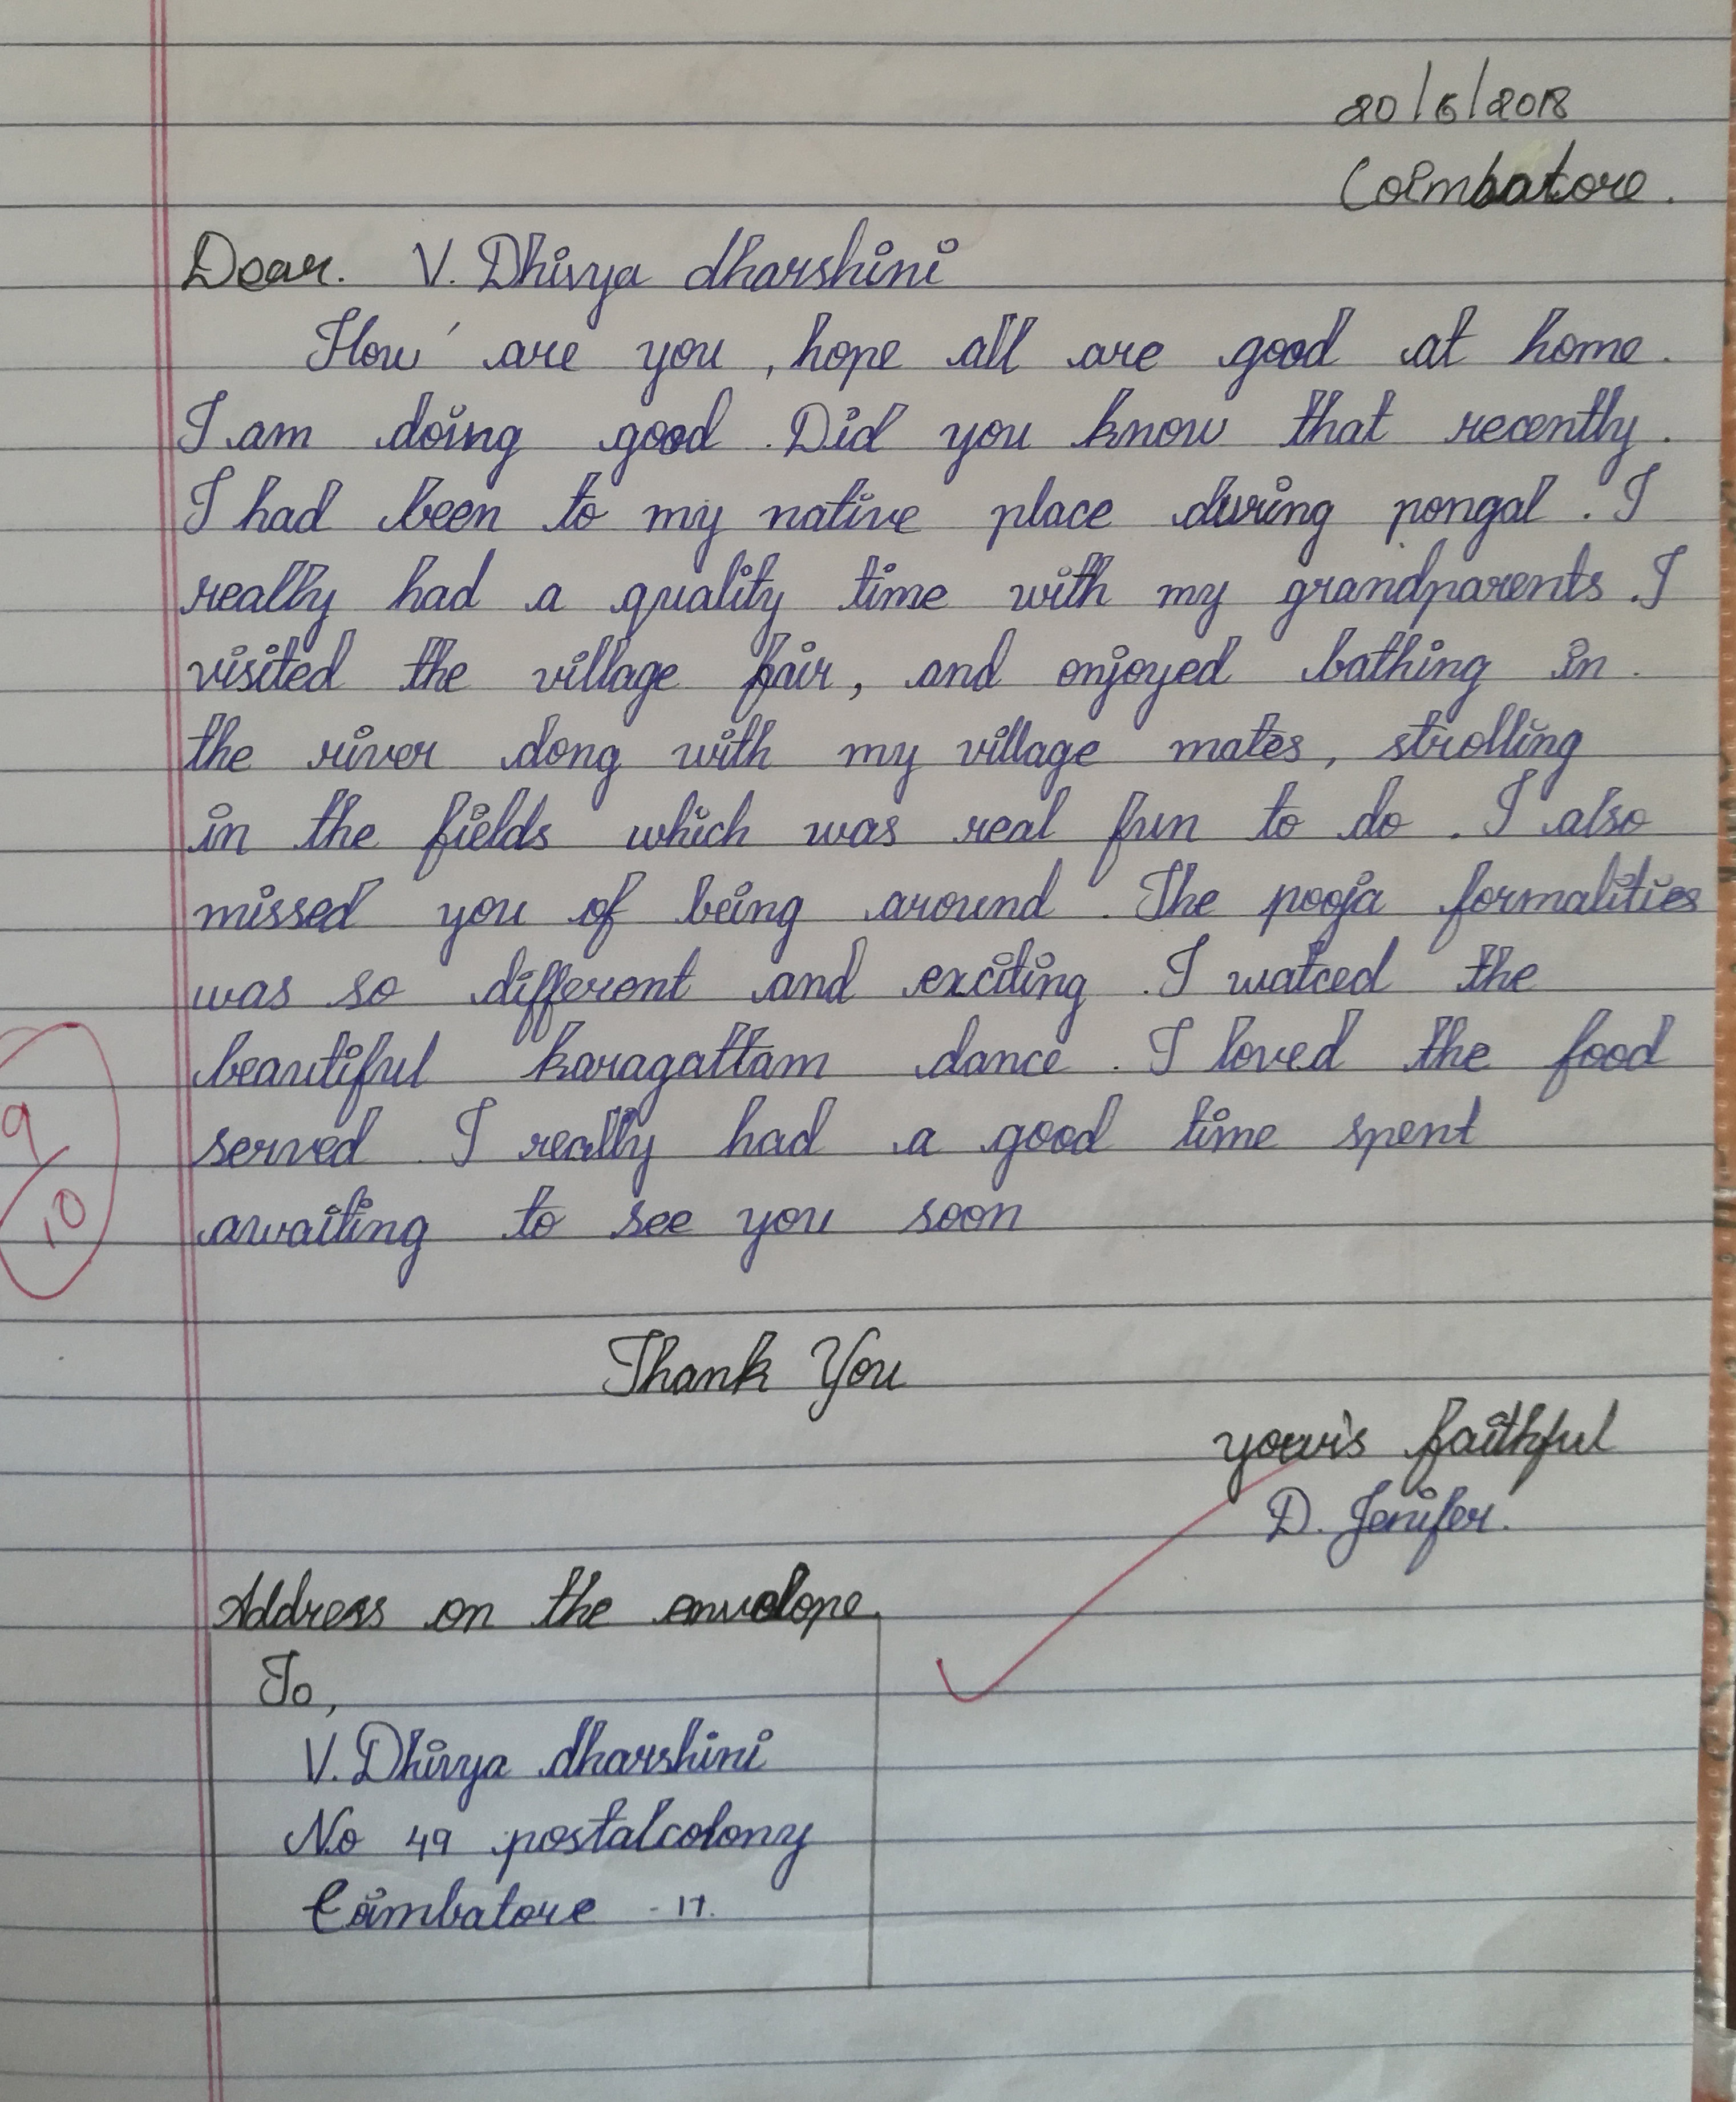 20/6/2018
Coimbatore.
Dear. V. Dhivya dharshini
How are you, hope all are good at home.
I am doing good. Did you know that recently.
I had been to my native place during pongal. I
really had a quality time with my grandparents. I
visited the village fair, and enjoyed bathing in.
the river along with my village mates, strolling
in the fields which was real fun to do. I also
missed you of being around. The pooja formalities
was so different and exciting. I watced the
beautiful karagattam dance. I loved the food
served. I really had a good time spent
awaiting to see you soon
9/10
Thank You
your's faithful
D. Jenifer.
Address on the envelope.
To,
V. Dhivya dharshini
No 49 postalcolony
Coimbatore - 17.